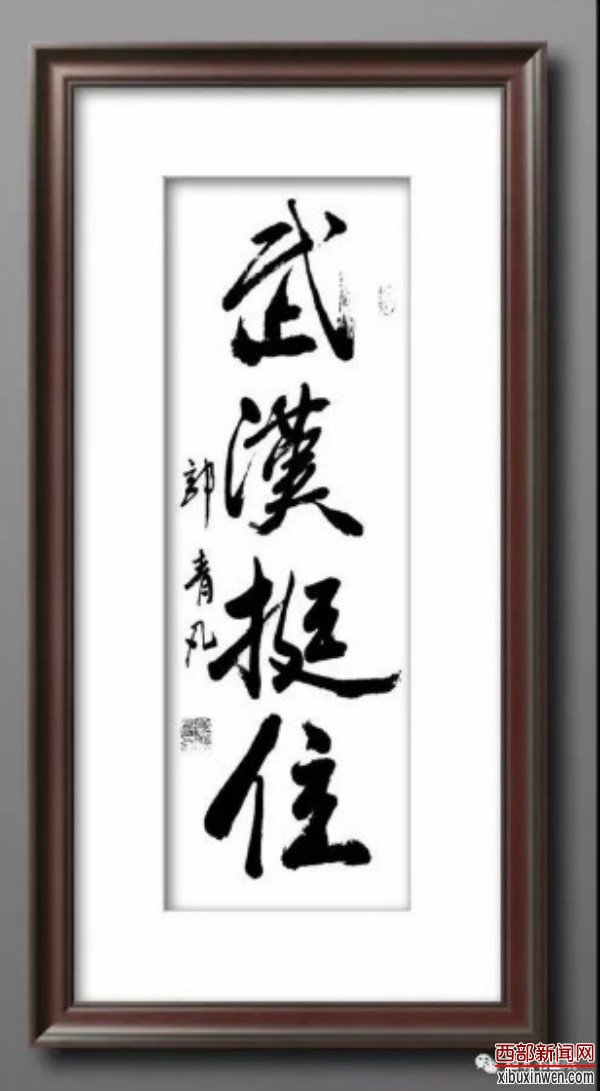 武漢挺住
郭青凡
西部新闻网
xibuxinwen.com